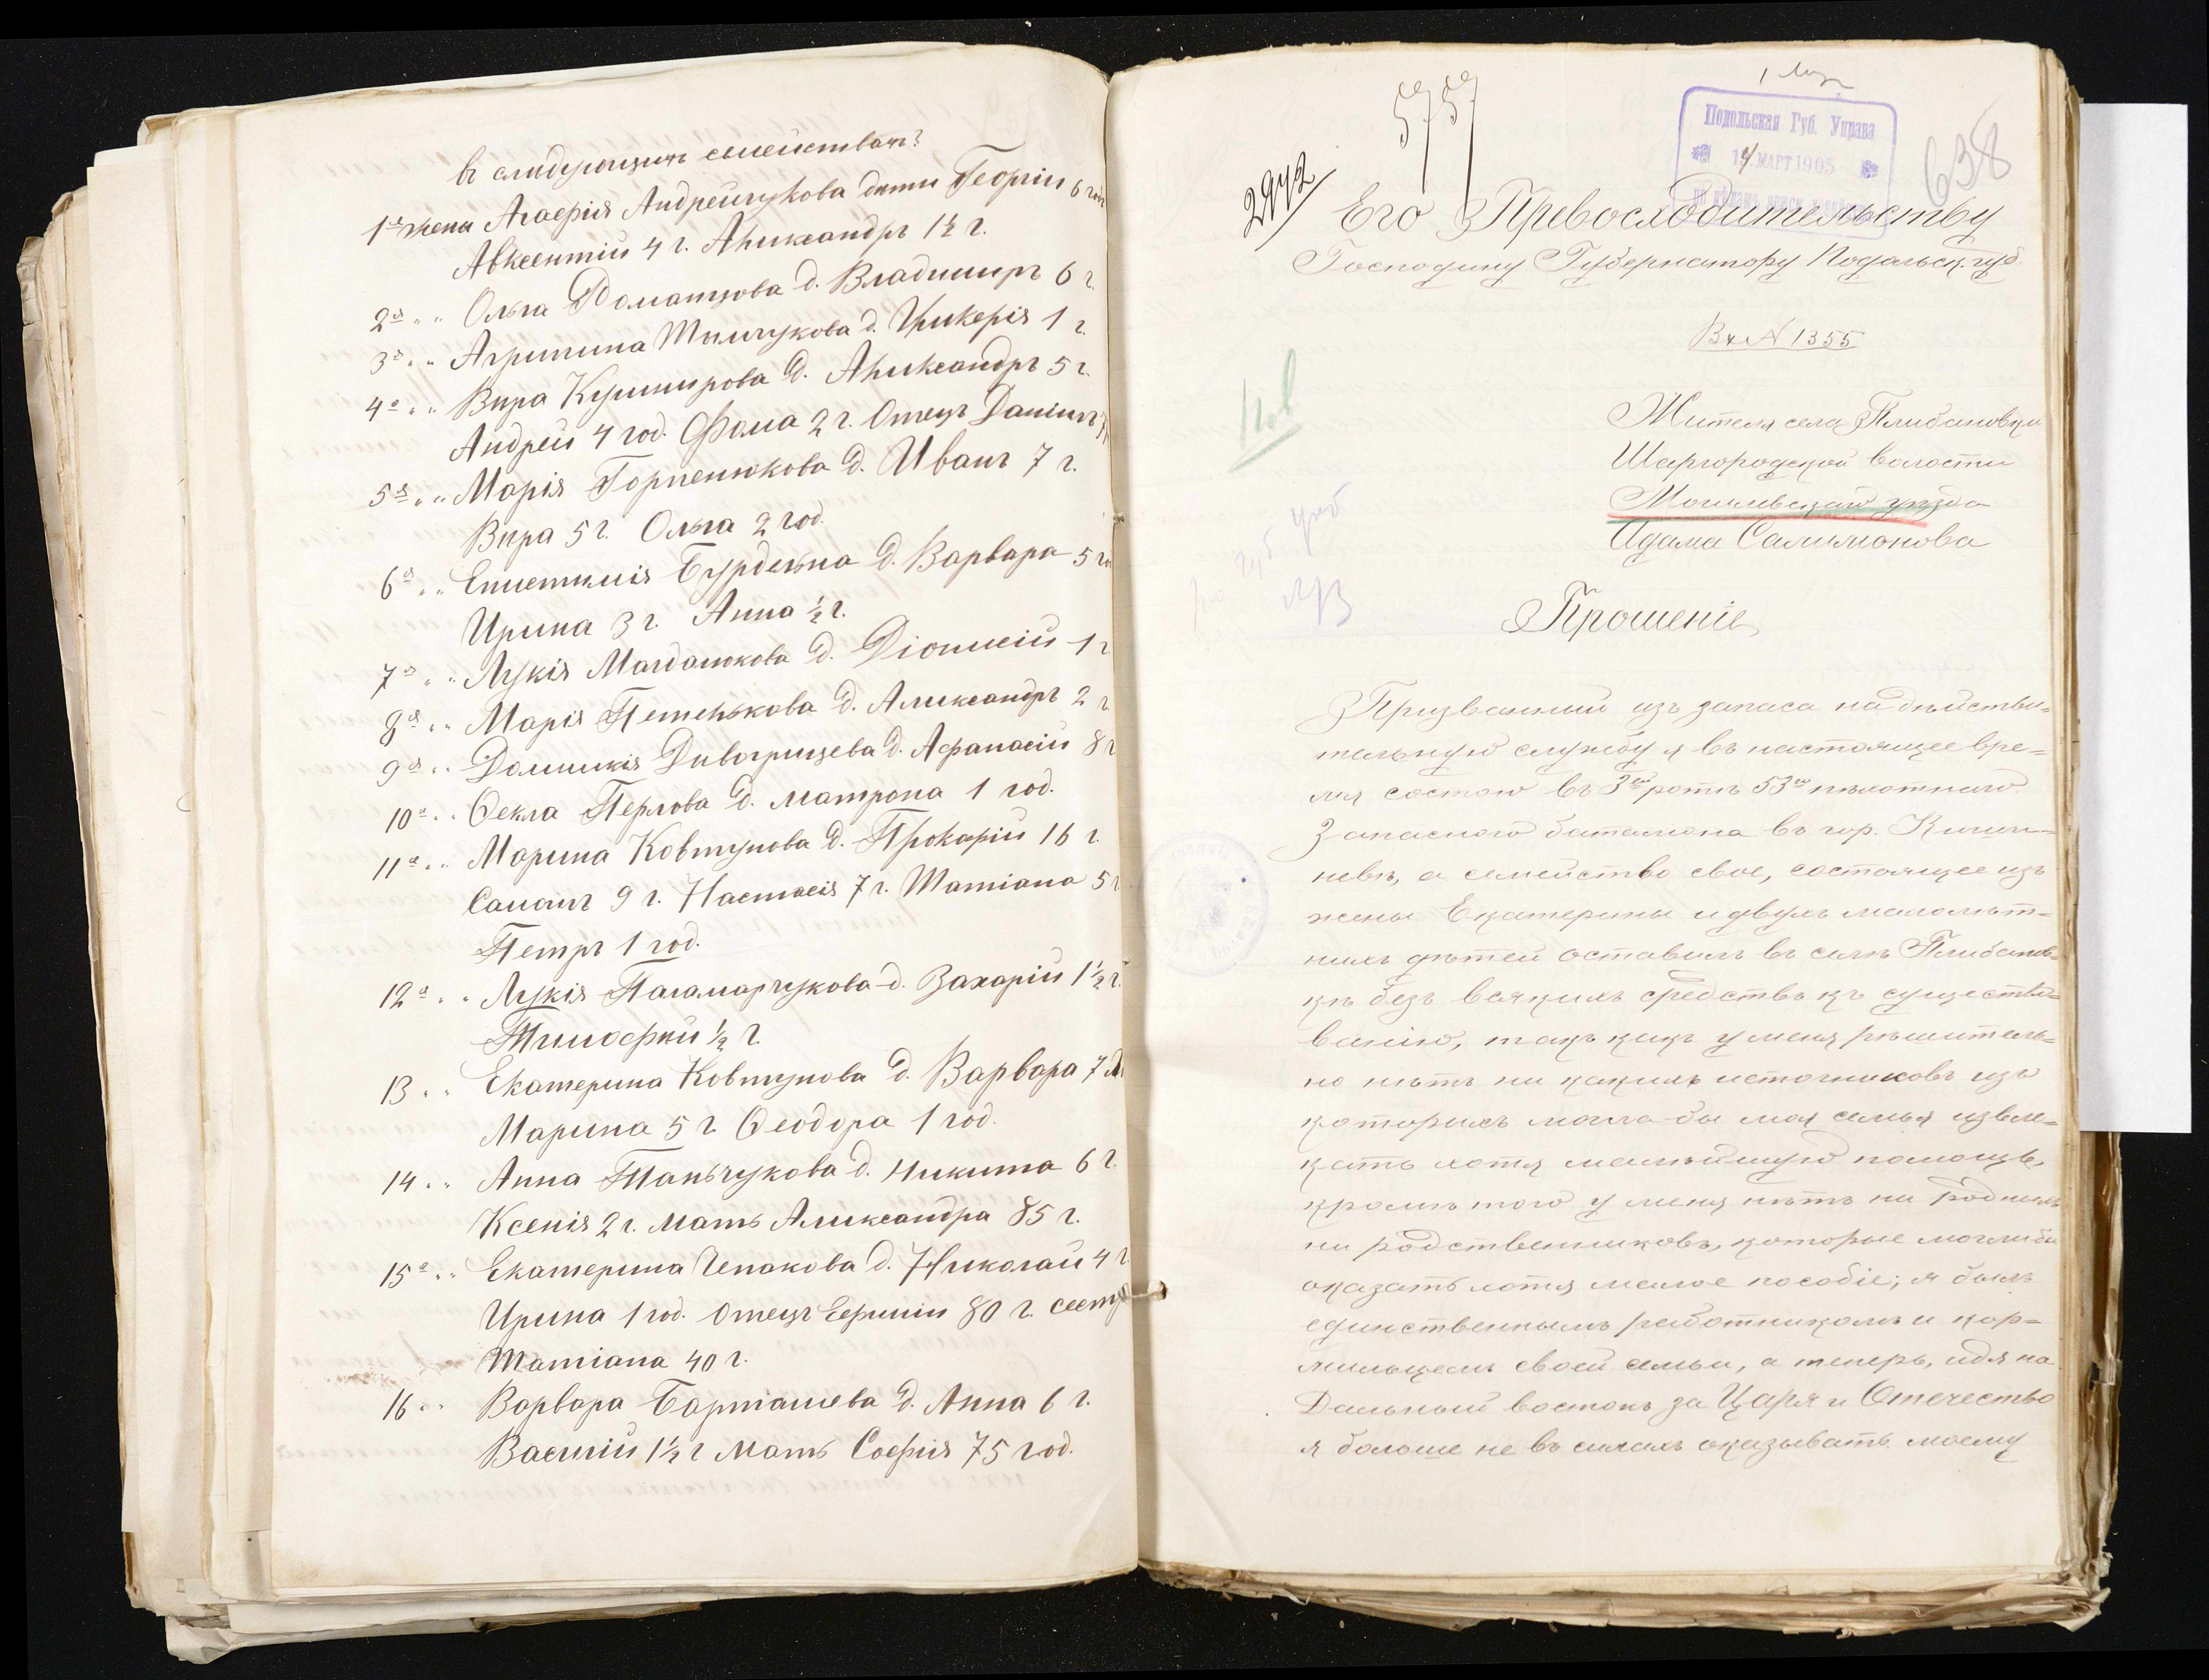 въ слидующихъ семействахъ:
1я жена Агафія Андрейчукова дити Георгій 6 год
Авксентій 4 г. Аликсандръ 1½ г.
2я " " Ольга Доманцова д. Владимиръ 6 г.
3я " " Агрипина Тимчукова д. Гликерія 1 г.
4я " " Вира Кушнирова д. Аликсандръ 5 г.
Андрей 4 год. Фома 2 г. Отецъ Даніилъ
5я " " Марія Горпенюкова д. Иванъ 7 г.
Вира 5 г. Ольга 2 год.
6я " " Епистимія Бурдейна д. Варвара 5 г.
Ирина 3 г. Анна ½ г.
7я " " Лукія Магдалюкова д. Діонисій 1 г
8я " " Марія Петенькова д. Алиександръ 2 г
9я " " Домникія Дивогрищева д. Афанасій 8 г
10я " " Өекла Перлова д. Матрона 1 год.
11я " " Марина Ковтунова д. Прокарій 16 г.
Самоилъ 9 г. Настасія 7 г. Татіана 5 г
Петръ 1 год.
12я " " Лукія Паламарчукова д. Захарій 1½ г.
Тимофтий ½ г.
13 " " Екатерина Ковтунова д. Варвара 7 л
Марина 5 г. Өеодора 1 год.
14 " " Анна Танчукова д. Никита 6 г.
Ксенія 2 г. Мать Алиександра 85 г.
15я " " Екатерина Чепакова д. Николай 4 г
Ирина 1 год. Отецъ Ефимій 80 г. сест
Татіана 40 г.
16 " " Варвара Барташева д. Анна 6 г.
Василій 1½ г Мать Софія 75 год.
5757
2972
638
Подольская Губ. Управа
14 МАРТ 1905
Его Превосходительству
Господину Губернатору Подольск. губ.
Вх № 1355
Жителя села Плибановки
Шаргородской волости
Могилевскаго уѣзда
Адама Салимонова
Прошеніе
Призванный изъ запаса на дѣйстви=
тельную службу я въ настоящее вре=
мя состою въ 3ей ротѣ 53го пѣхотнаго
Запасного баталіона въ гор. Киши=
невѣ, а семейство свое, состоящее изъ
жены Екатерины и двухъ малолѣт=
нихъ дѣтей оставилъ въ селѣ Плибанов=
кѣ безъ всякихъ средствъ къ существо=
ванію, такъ какъ у меня рѣшитель=
но нѣтъ ни какихъ источниковъ изъ
которыхъ могла-бы моя семья извле=
кать хотя малѣйшую помощь,
кромѣ того у меня нѣтъ ни родныхъ
ни родственниковъ, которые могли бы
оказать хотя малое пособіе; я былъ
единственнымъ работникомъ и кор=
мильцемъ своей семьи, а теперь, идя на
Дальный востокъ за Царя и Отечество
я больше не въ силахъ оказывать моему